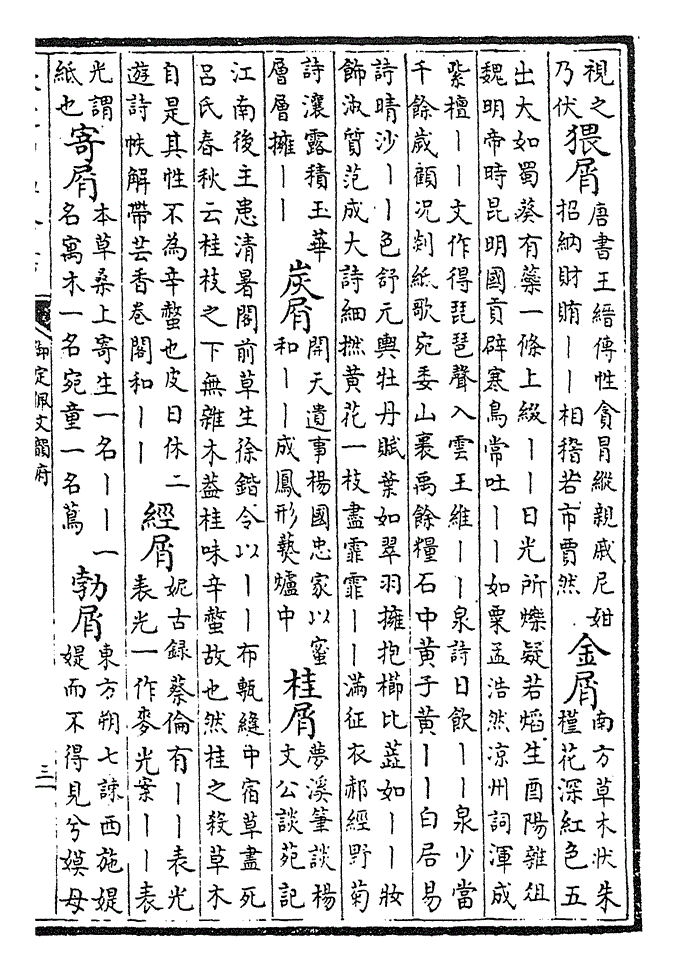 視之
乃伏
猥屑
唐書王縉傳性貪冒縱親戚尼姏
招納財賄丨丨相稽若市賈然
金屑
南方草木狀朱
槿花深紅色五
出大如蜀葵有蘂一條上綴丨丨日光所爍疑若熖生酉陽雜俎
魏明帝時昆明國貢辟寒鳥常吐丨丨如粟孟浩然凉州詞渾成
紫檀丨丨文作得琵琶聲入雲王維丨丨泉詩日飲丨丨泉少當
千餘歲顧況剡紙歌宛委山裏禹餘糧石中黄子黄丨丨白居易
詩晴沙丨丨色舒元輿牡丹賦葉如翠羽擁抱櫛比蕋如丨丨妝
飾淑質范成大詩細撚黄花一枝盡霏霏丨丨滿征衣郝經野菊
詩瀼露積玉華
層層擁丨丨
炭屑
開天遺事楊國忠家以蜜
和丨丨成鳳形爇爐中
桂屑
夢溪筆談楊
文公談苑記
江南後主患清暑閣前草生徐鍇令以丨丨布甎縫中宿草盡死
呂氏春秋云桂枝之下無雜木葢桂味辛螫故也然桂之殺草木
自是其性不為辛螫也皮日休二
遊詩帙解帶芸香卷閣和丨丨
經屑
妮古録蔡倫有丨丨表光
表光一作麥光案丨丨表
光謂
紙也
寄屑
本草桑上寄生一名丨丨一
名寓木一名宛童一名蔦
勃屑
東方朔七諫西施媞
媞而不得見兮嫫母
御定佩文韻府